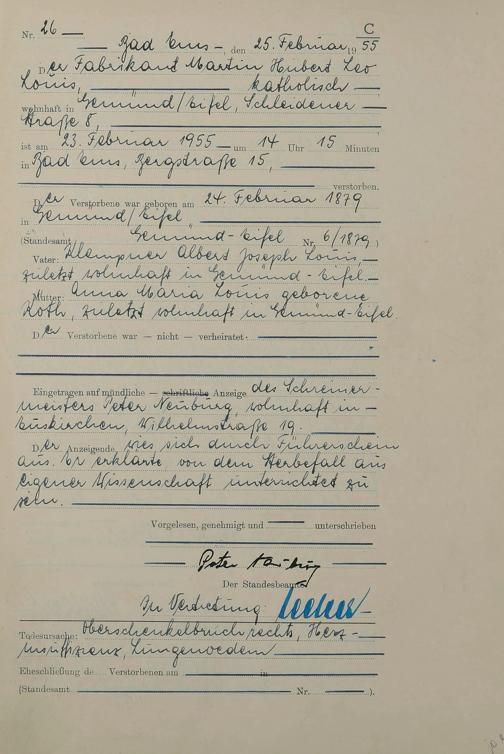 Nr. 26
C
Bad Ems, den 25. Februar 1955
Der Fabrikant Martin Hubert Leo
Louis, katholisch
wohnhaft in Gemünd/Eifel, Schleidener
Straße 8,
ist am 23. Februar 1955 um 14 Uhr 15 Minuten
in Bad Ems, Bergstraße 15,
verstorben.
Der Verstorbene war geboren am 24. Februar 1879
in Gemünd/Eifel
(Standesamt Gemünd-Eifel Nr. 6/1879)
Vater: Klempner Albert Joseph Louis,
zuletzt wohnhaft in Gemünd-Eifel.
Mutter: Anna Maria Louis geborene
Roth, zuletzt wohnhaft in Gemünd-Eifel.
Der Verstorbene war — nicht — verheiratet
Eingetragen auf mündliche — schriftliche Anzeige des Schreiner-
meisters Peter Neuburg, wohnhaft in
Euskirchen, Wilhelmstraße 19.
Der Anzeigende wies sich durch Führerschein
aus. Er erklärte von dem Sterbefall aus
eigener Wissenschaft unterrichtet zu
sein.
Vorgelesen, genehmigt und unterschrieben
Peter Neuburg
Der Standesbeamte
In Vertretung:
Todesursache: Oberschenkelbruch rechts, Herz-
insuffizienz, Lungenoedem
Eheschließung de Verstorbenen am in
(Standesamt Nr. ).